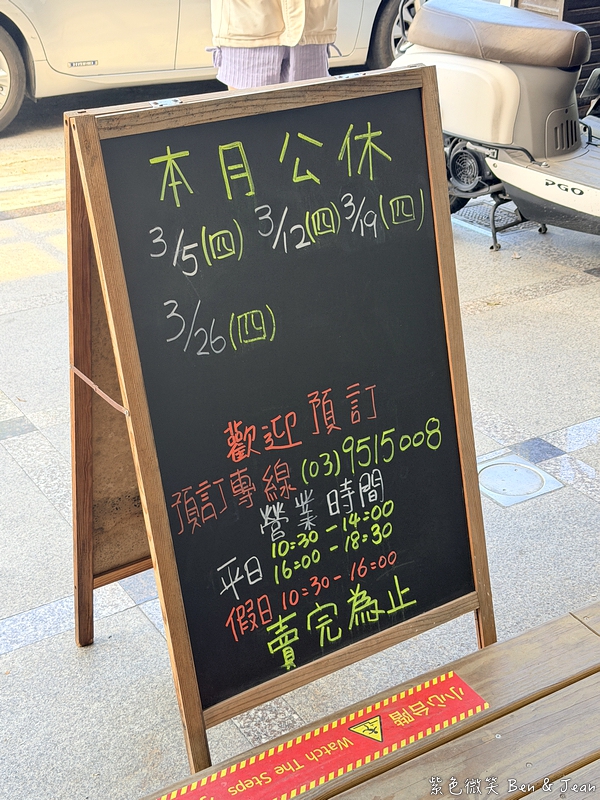 本月公休
3/5(四) 3/12(四) 3/19(四)
3/26(四)
歡迎預訂
預訂專線 (03)9515008
營業時間
平日 10:30-14:00
16:00-18:30
假日 10:30-16:00
賣完為止
小心台階
Watch The Steps
PGO
紫色微笑 Ben & Jean